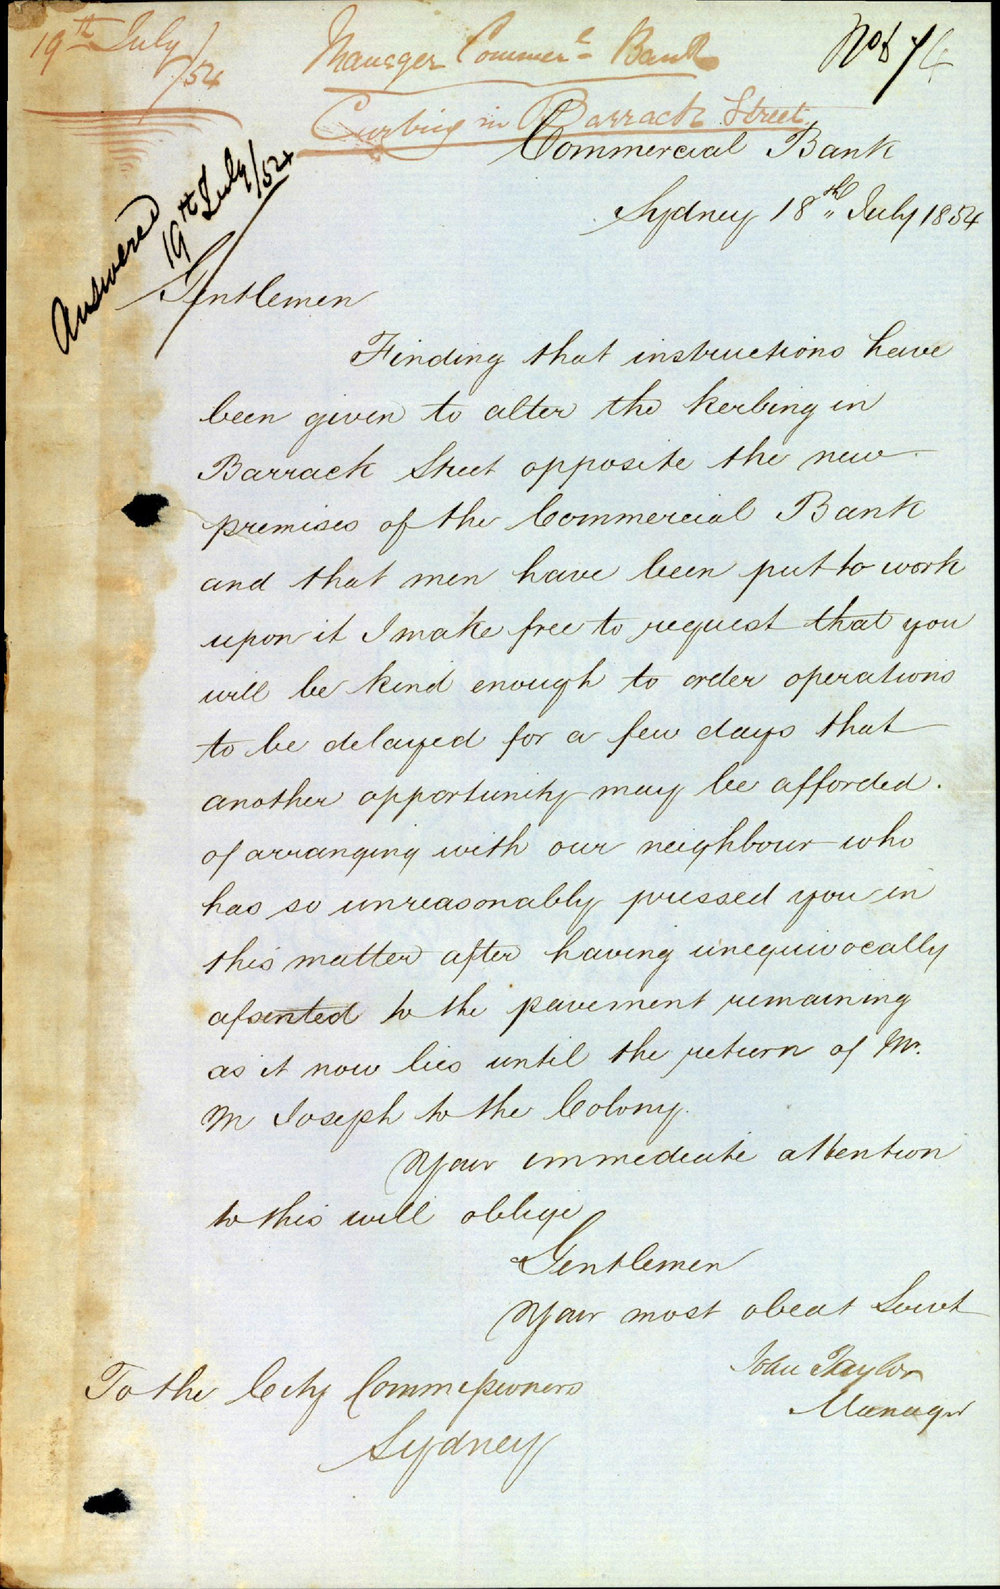 19th July /54
Manager Commerl Bank
No 74
Curbing in Barrack Street
Commercial Bank
Sydney 18th July 1854
Answered
19th July /54
Gentlemen
Finding that instructions have
been given to alter the kerbing in
Barrack Street opposite the new
premises of the Commercial Bank
and that men have been put to work
upon it I make free to request that you
will be kind enough to order operations
to be delayed for a few days that
another opportunity may be afforded.
of arranging with our neighbour who
has so unreasonably pressed you in
this matter after having unequivocally
assented to the pavement remaining
as it now lies until the return of Mr.
M Joseph to the Colony.
Your immediate attention
to this will oblige
Gentlemen
Your most obedt Servt
John Taylor
Manager
To the City Commissioners
Sydney